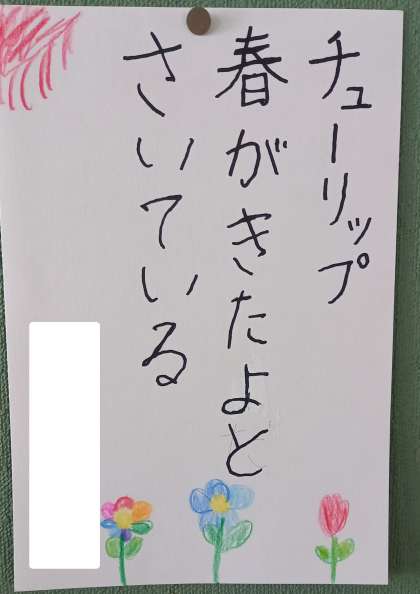 チューリップ
春がきたよと
さいている